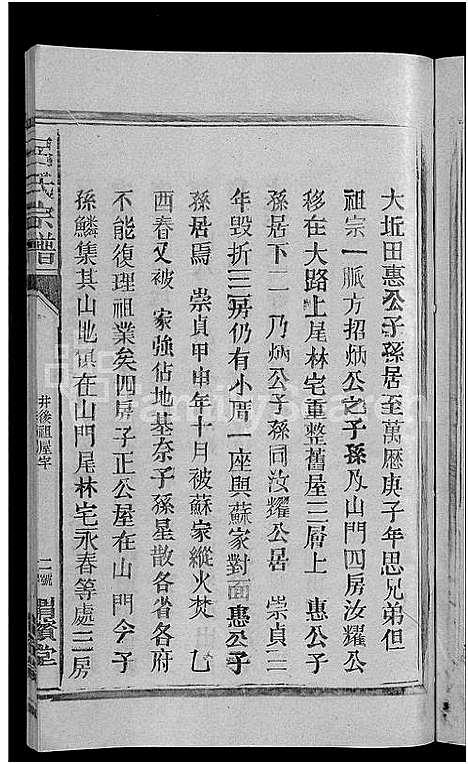 大坵田惠公子孫居至萬曆庚子年思兄弟但
祖宗一脈方招炳公之子孫及山門四房汝耀公
移在大路上尾林宅重整舊屋三層上 惠公子
孫居下二 乃炳公子孫同汝耀公居 崇貞二
年毀折三房仍有小厝一座與蘇家對面惠公子
孫居焉 崇貞甲申年十月被蘇家縱火焚 乙
酉春又被 家強佔地基奈子孫星散各省各府
不能復理祖業矣四房子正公屋在山門今子
孫鱗集其山地俱在山門尾林宅永春等處三房
呂氏宗譜
井後祖屋字
二號
渭濱堂
familysearch